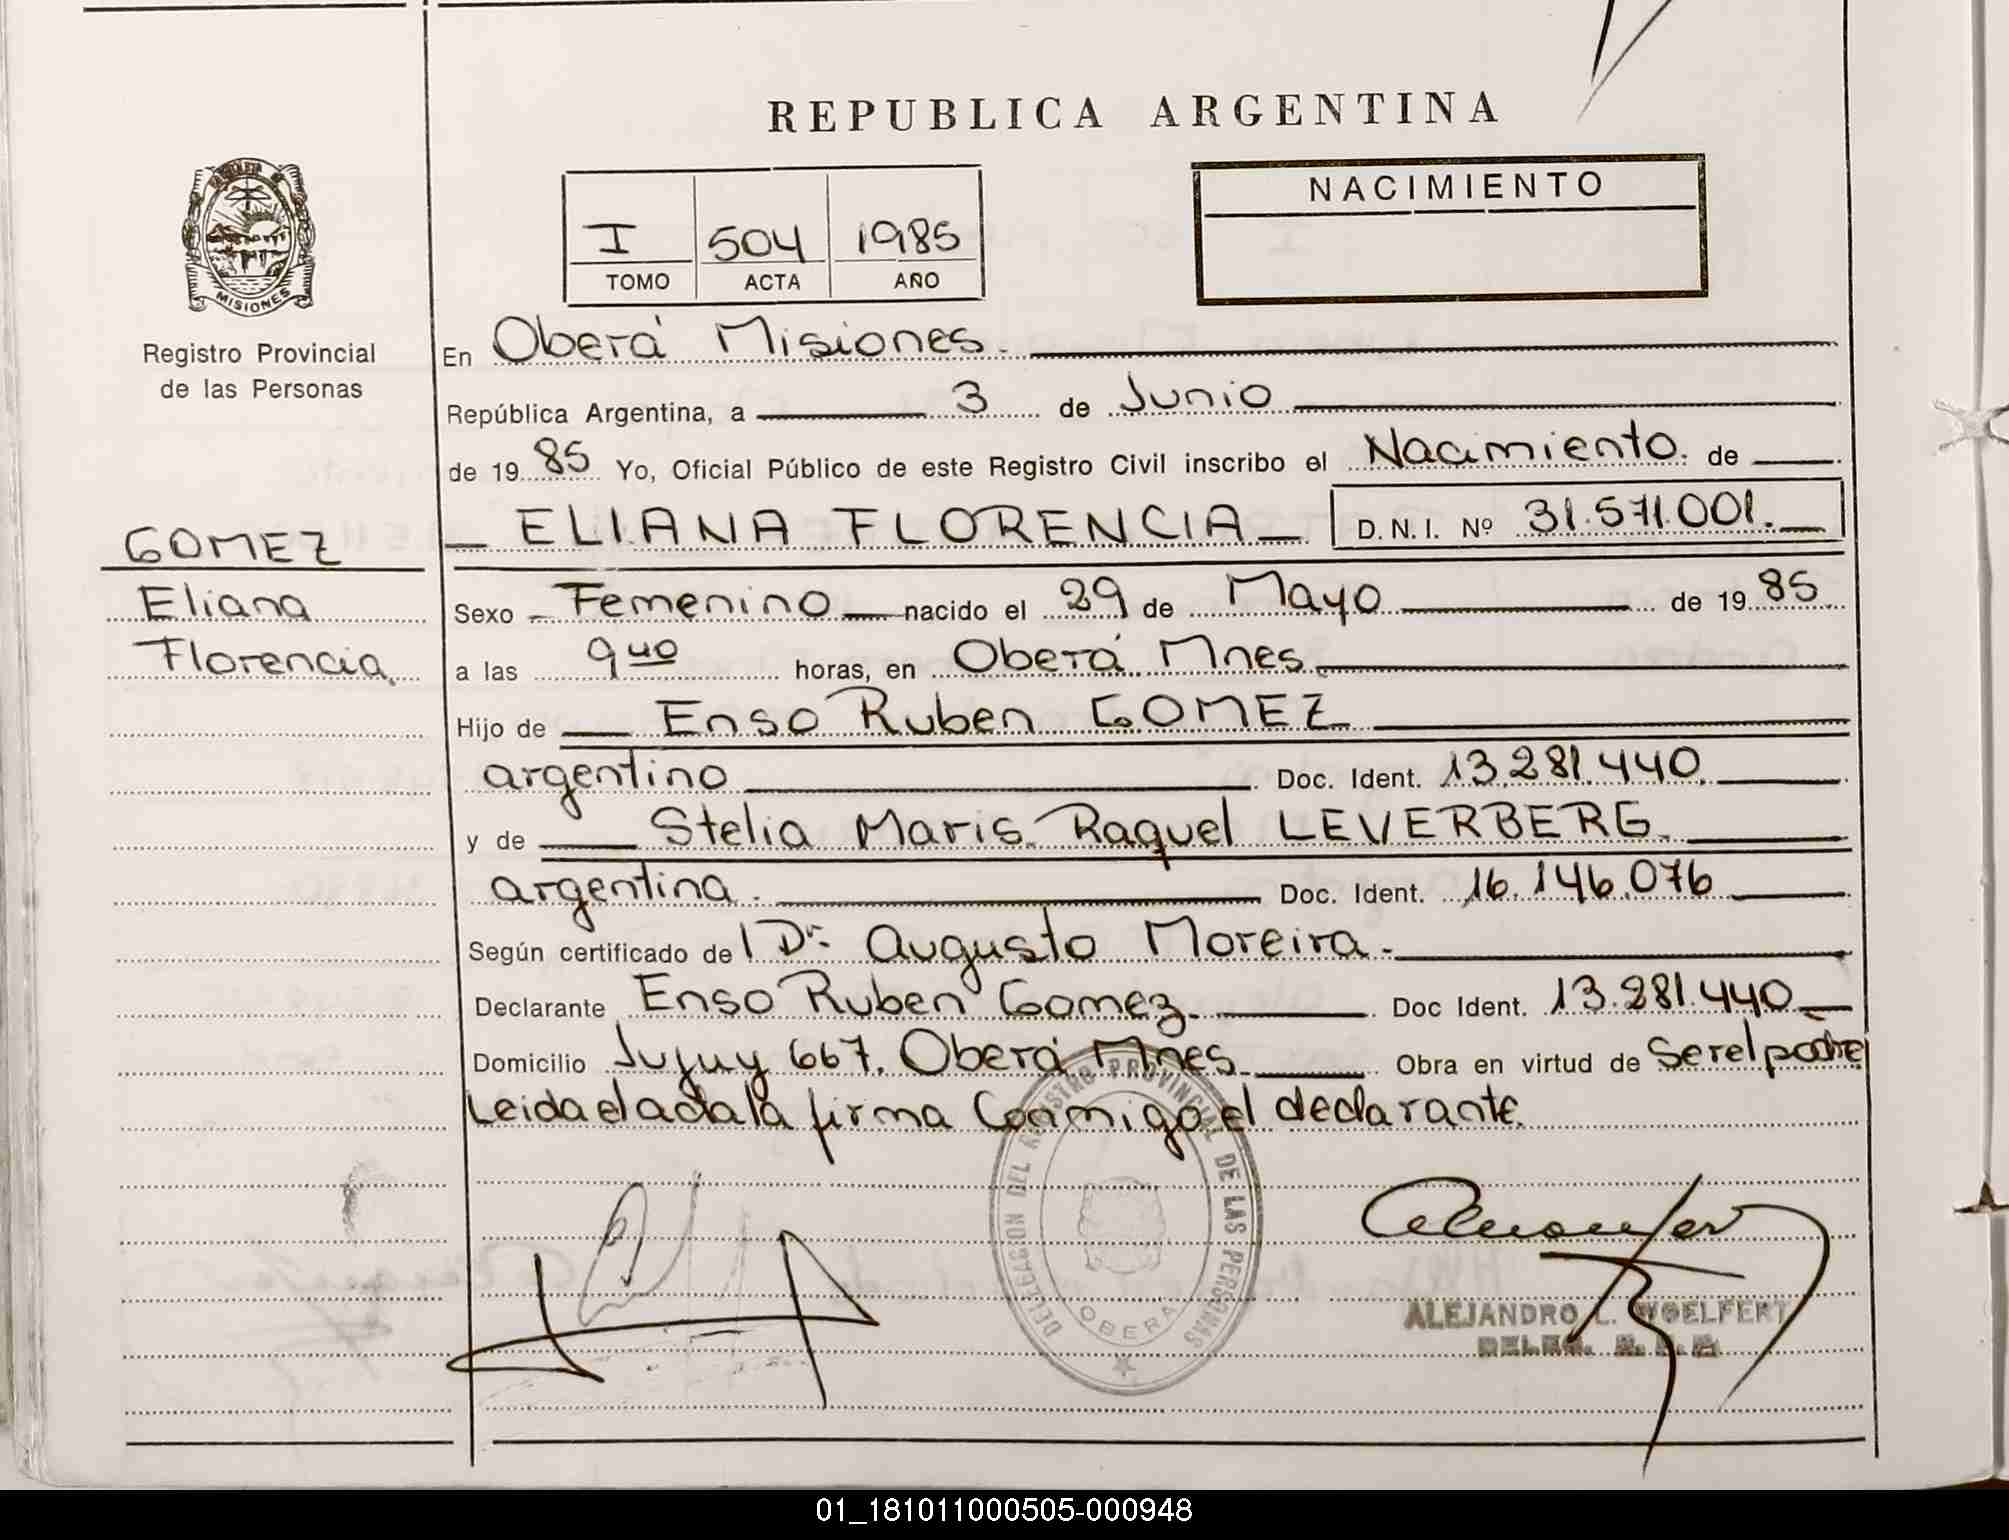 REPUBLICA ARGENTINA
NACIMIENTO
I 504 1985
TOMO ACTA AÑO
MISIONES
Registro Provincial
de las Personas
GOMEZ
Eliana
Florencia
En Oberá Misiones.
República Argentina, a 3 de Junio
de 19 85 Yo, Oficial Público de este Registro Civil inscribo el Nacimiento. de
ELIANA FLORENCIA D. N. I. Nº 31.571.001.
Sexo Femenino nacido el 29 de Mayo de 19 85
a las 9 40 horas, en Oberá Mnes.
Hijo de Enso Ruben GOMEZ
argentino Doc. Ident. 13.281.440.
y de Stelia Maris Raquel LEVERBERG.
argentina. Doc. Ident. 16.146.076
Según certificado del Dr. Augusto Moreira.
Declarante Enso Ruben Gomez. Doc Ident. 13.281.440
Domicilio Jujuy 667. Oberá Mnes. Obra en virtud de Ser el padre
Leida el acta la firma Conmigo el declarante.
DELEGACION DEL REGISTRO PROVINCIAL DE LAS PERSONAS
OBERA
ALEJANDRO L. WOELFERT
DELEG.
01_181011000505-000948